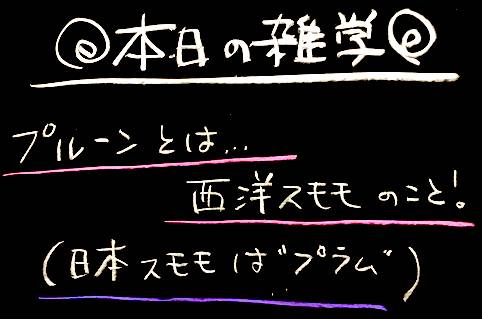 @本日の雑学@
プルーンとは...
西洋スモモのこと!
(日本スモモは"プラム")